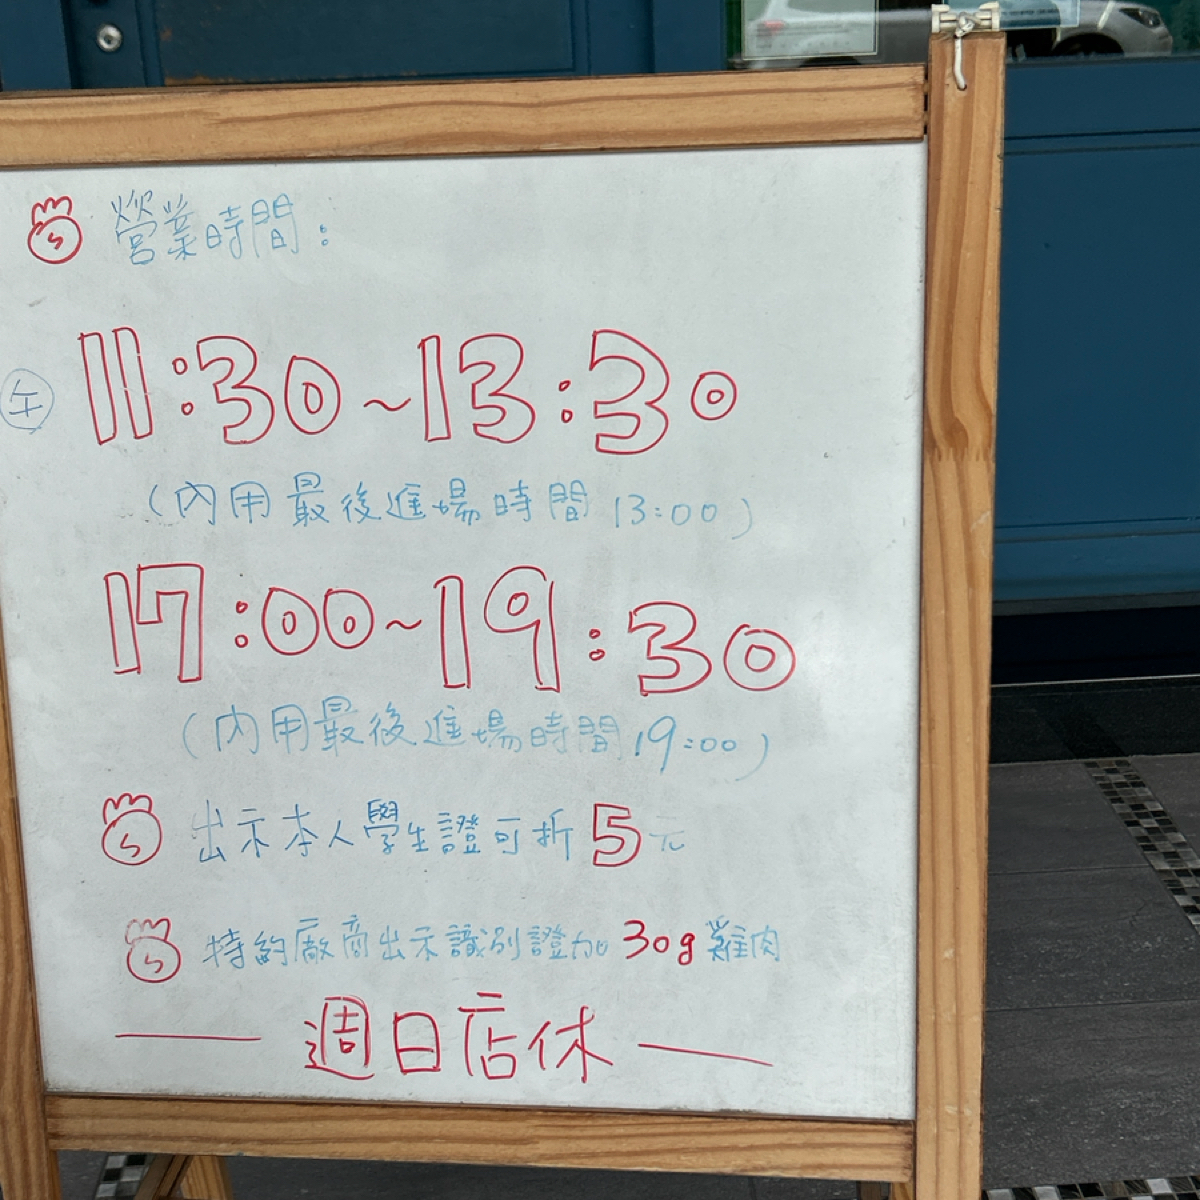 營業時間:
午 11:30~13:30
(內用最後進場時間 13:00)
17:00~19:30
(內用最後進場時間 19:00)
出示本人學生證可折5元
特約廠商出示識別證加30g雞肉
— 週日店休 —